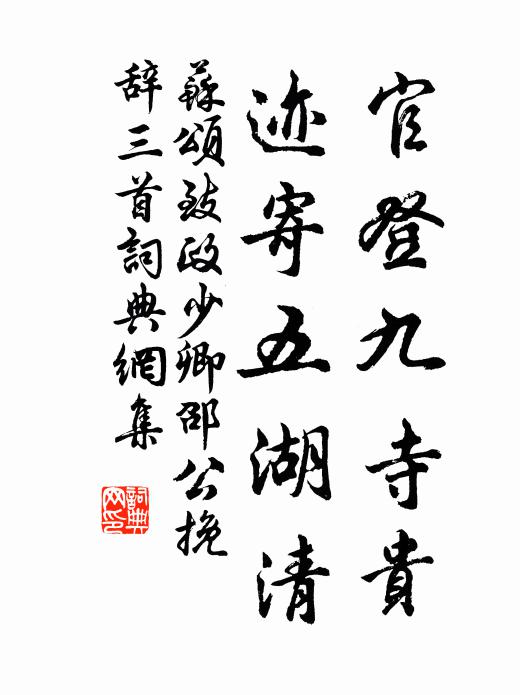 官登九寺貴
迹寄五湖清
蘇頌致政少卿邵公挽
辞三首詞典網集
詞典
网印